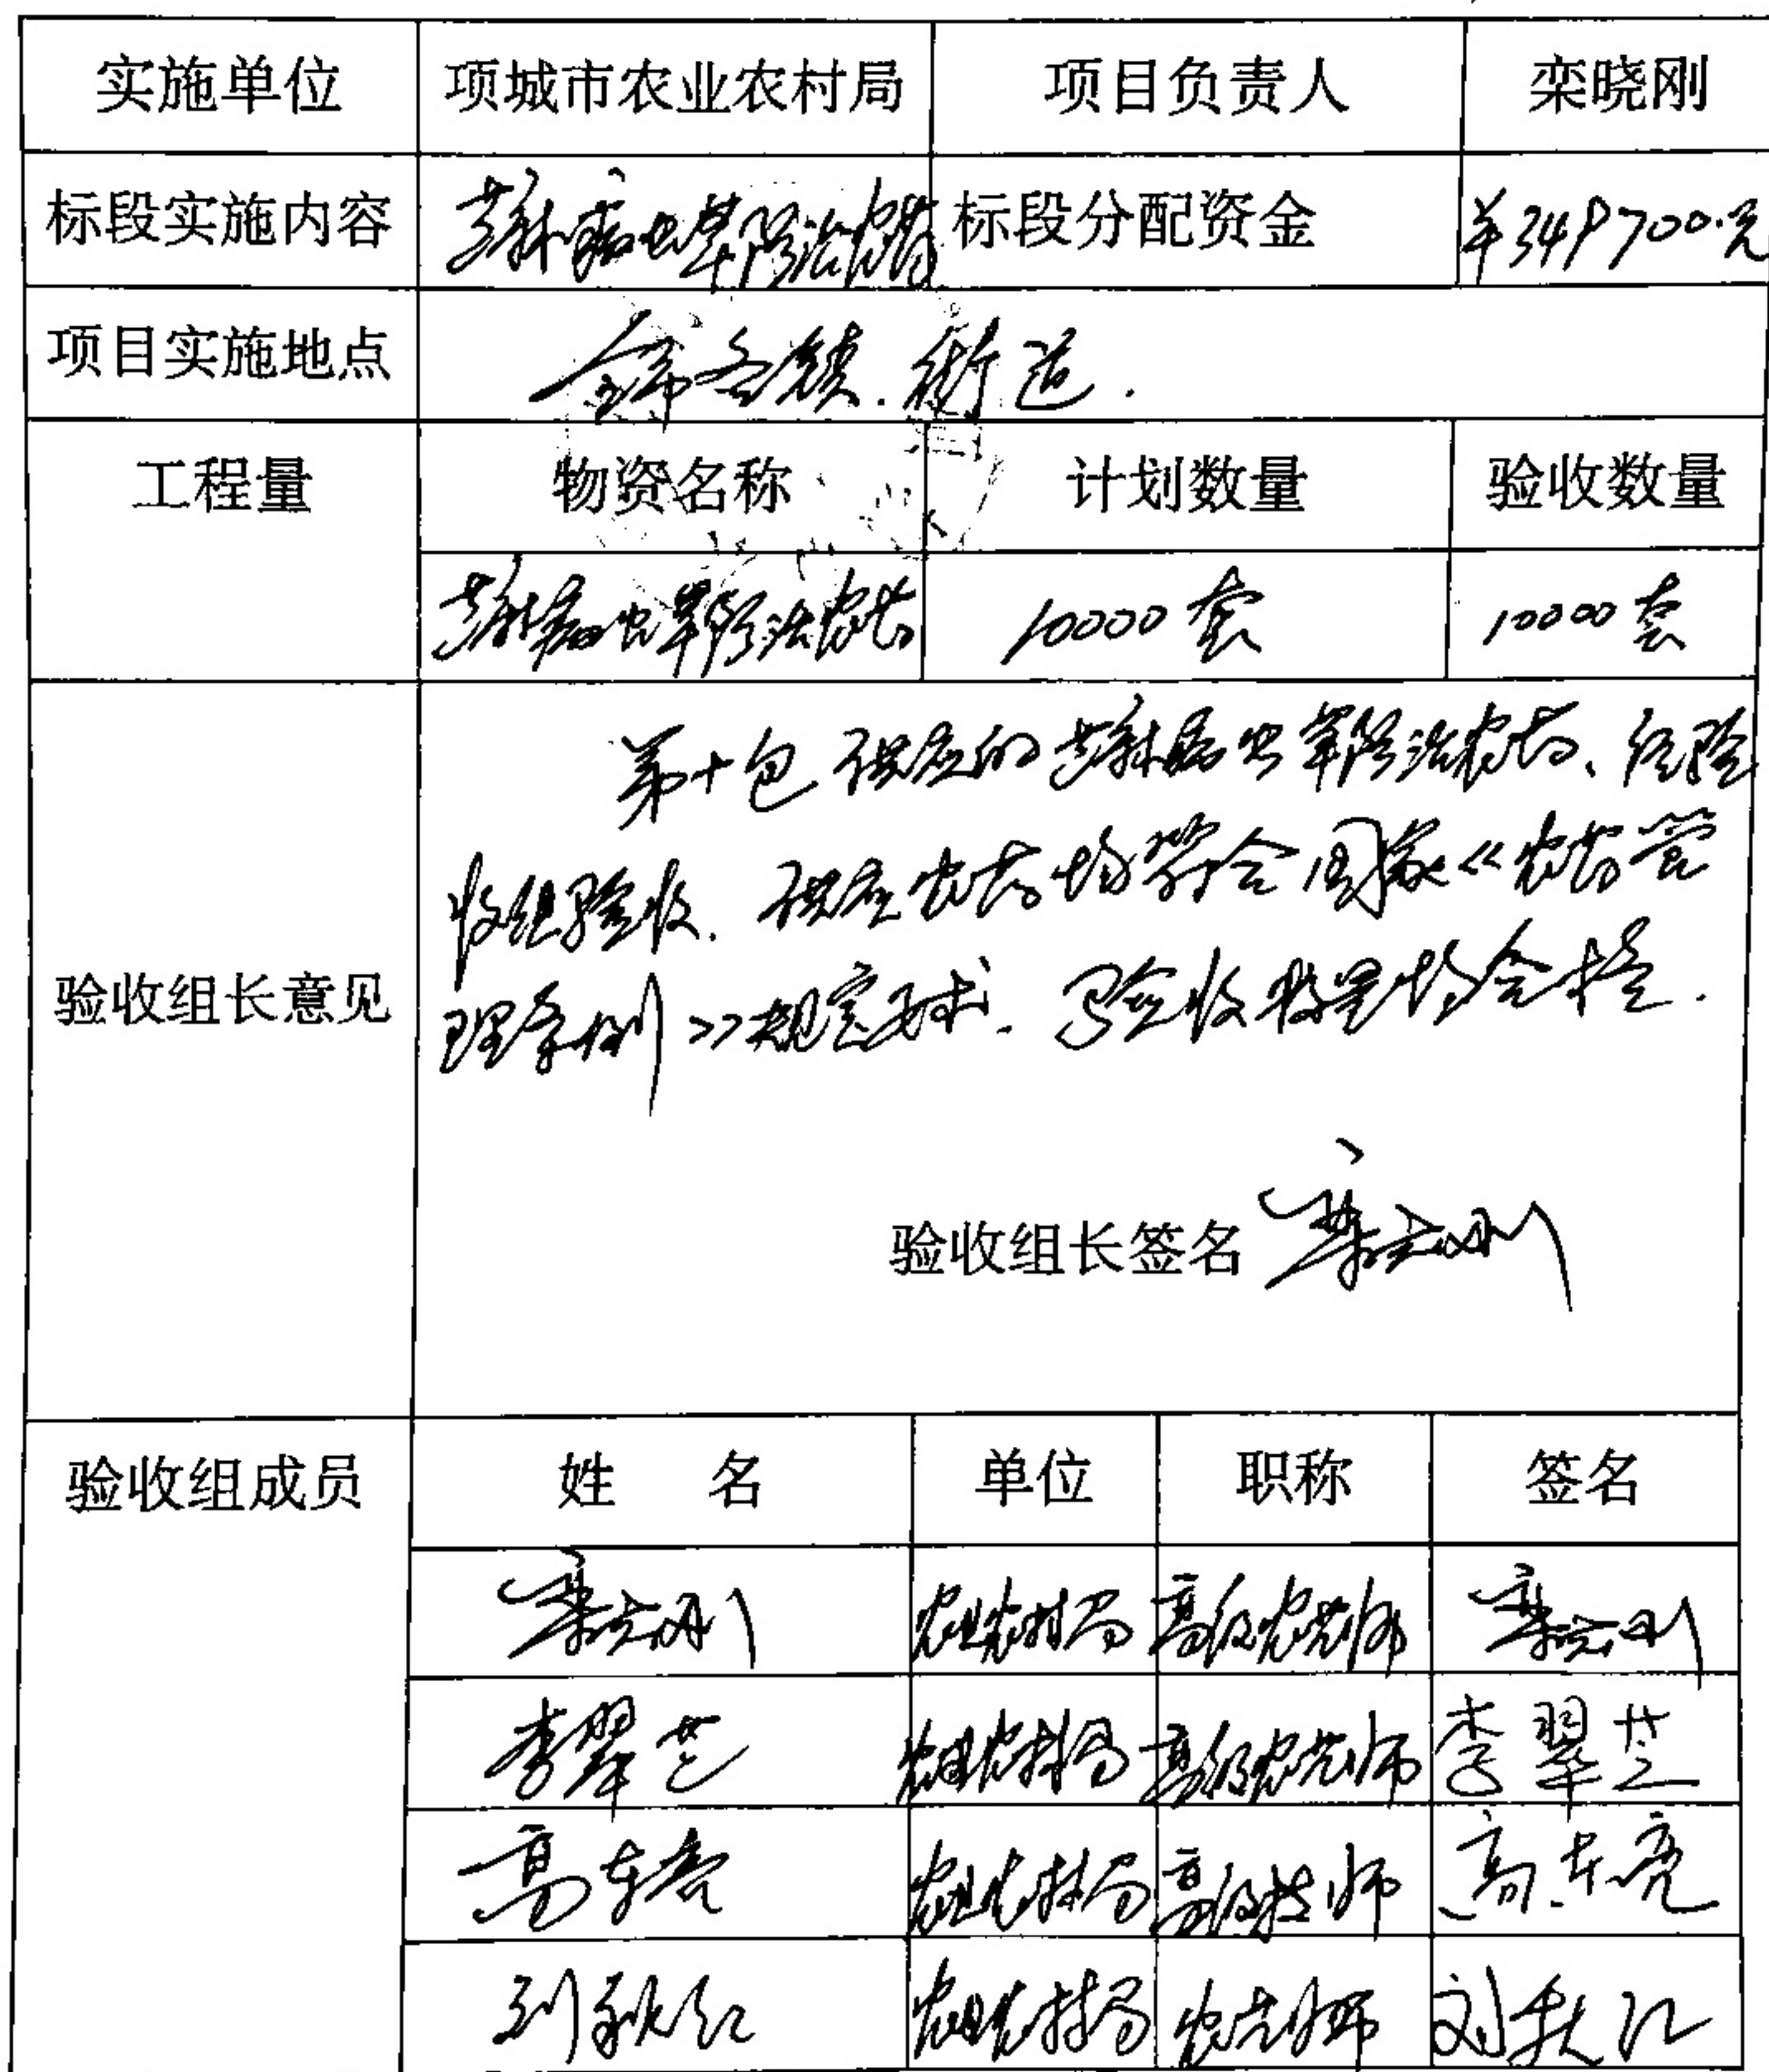 实施单位 项城市农业农村局 项目负责人 栾晓刚
标段实施内容 芝麻病虫草防治农药 标段分配资金 ¥349700.元
项目实施地点 全市各镇.街道.
工程量 物资名称 计划数量 验收数量
芝麻病虫草防治农药 10000套 10000套
第十包供应的芝麻病虫草防治农药、经验
收组验收.供应农药均符合国家《农药管
验收组长意见
理条例》规定要求.验收数量均合格.
验收组长签名 栾晓刚
验收组成员 姓 名 单位 职称 签名
栾晓刚 农业农村局 高级农艺师 栾晓刚
李翠芝 农业农村局 高级农艺师 李翠芝
高东亮 农业农村局 高级技师 高东亮
刘秋红 农业农村局 农艺师 刘秋红